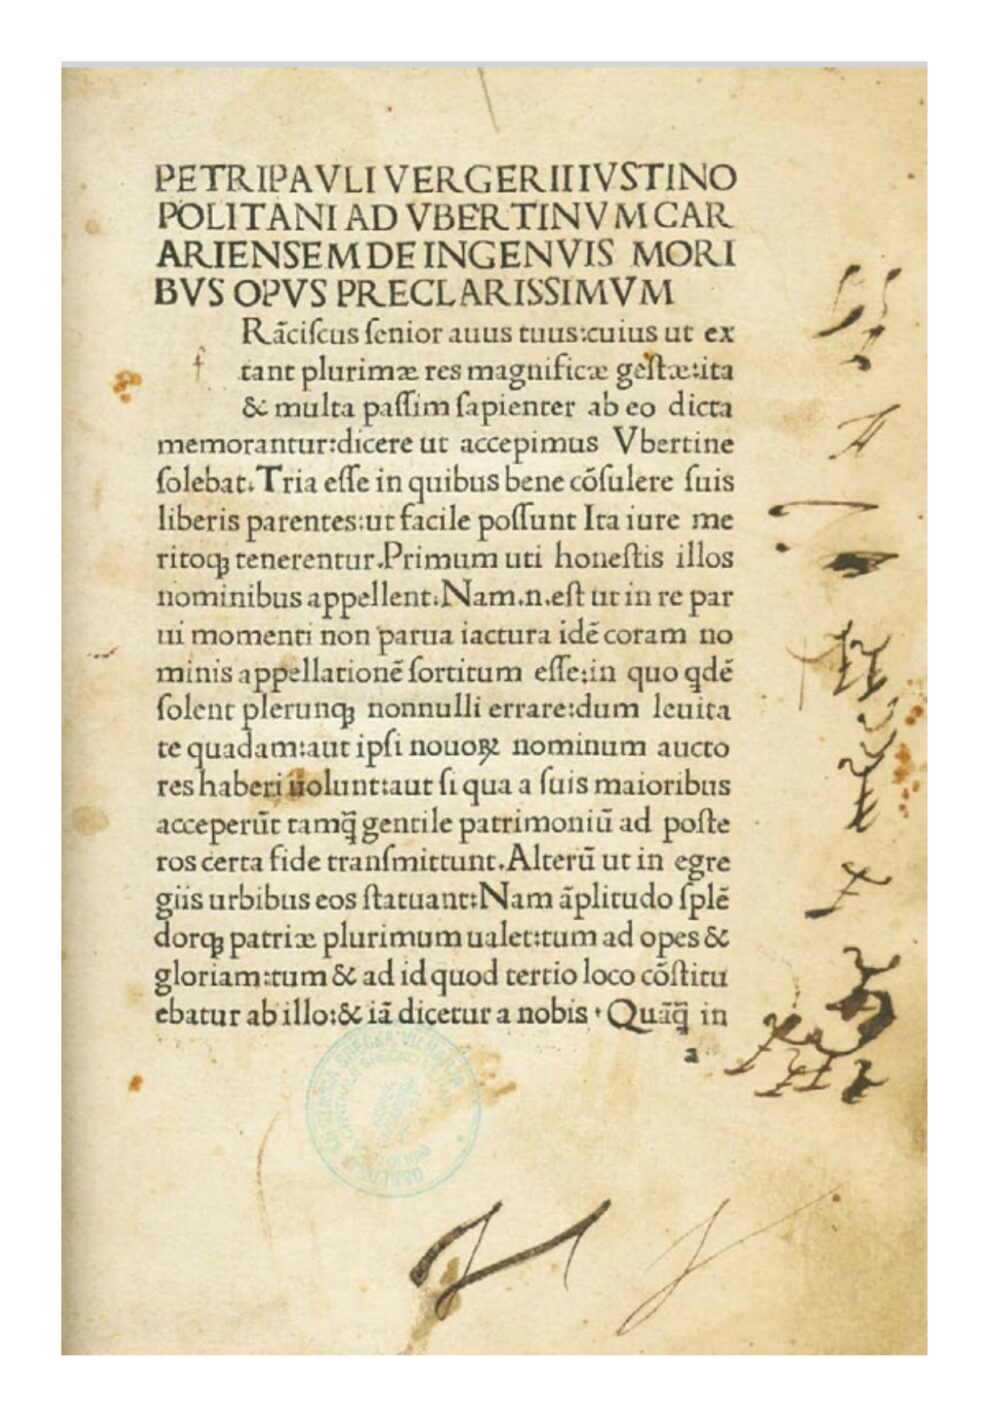 PETRI PAVLI VERGERII IVSTINO
POLITANI AD VBERTINVM CAR
ARIENSEM DE INGENVIS MORI
BVS OPVS PRECLARISSIMVM
Rãciſcus ſenior auus tuus:cuius ut ex
f tant plurimæ res magnificæ geſtæ:ita
& multa paſſim ſapienter ab eo dicta
memorantur:dicere ut accepimus Vbertine
ſolebat.Tria eſſe in quibus bene cõſulere ſuis
liberis parentes:ut facile poſſunt Ita iure me
ritoqꝫ tenerentur.Primum uti honeſtis illos
nominibus appellent:Nam.n.eſt ut in re par
ui momenti non parua iactura idẽ coram no
minis appellationẽ ſortitum eſſe:in quo qdẽ
ſolent plerunqꝫ nonnulli errare:dum leuita
te quadam:aut ipſi nouoꝝ nominum aucto
res haberi uolunt:aut ſi qua a ſuis maioribus
acceperũt tamq̃ gentile patrimoniũ ad poſte
ros certa fide tranſmittunt.Alterũ ut in egre
giis urbibus eos ſtatuant:Nam ãplitudo ſplẽ
dorqꝫ patriæ plurimum ualet:tum ad opes &
gloriam:tum & ad id quod tertio loco cõſtitu
ebatur ab illo:& iã dicetur a nobis · Quãq̃ in
a